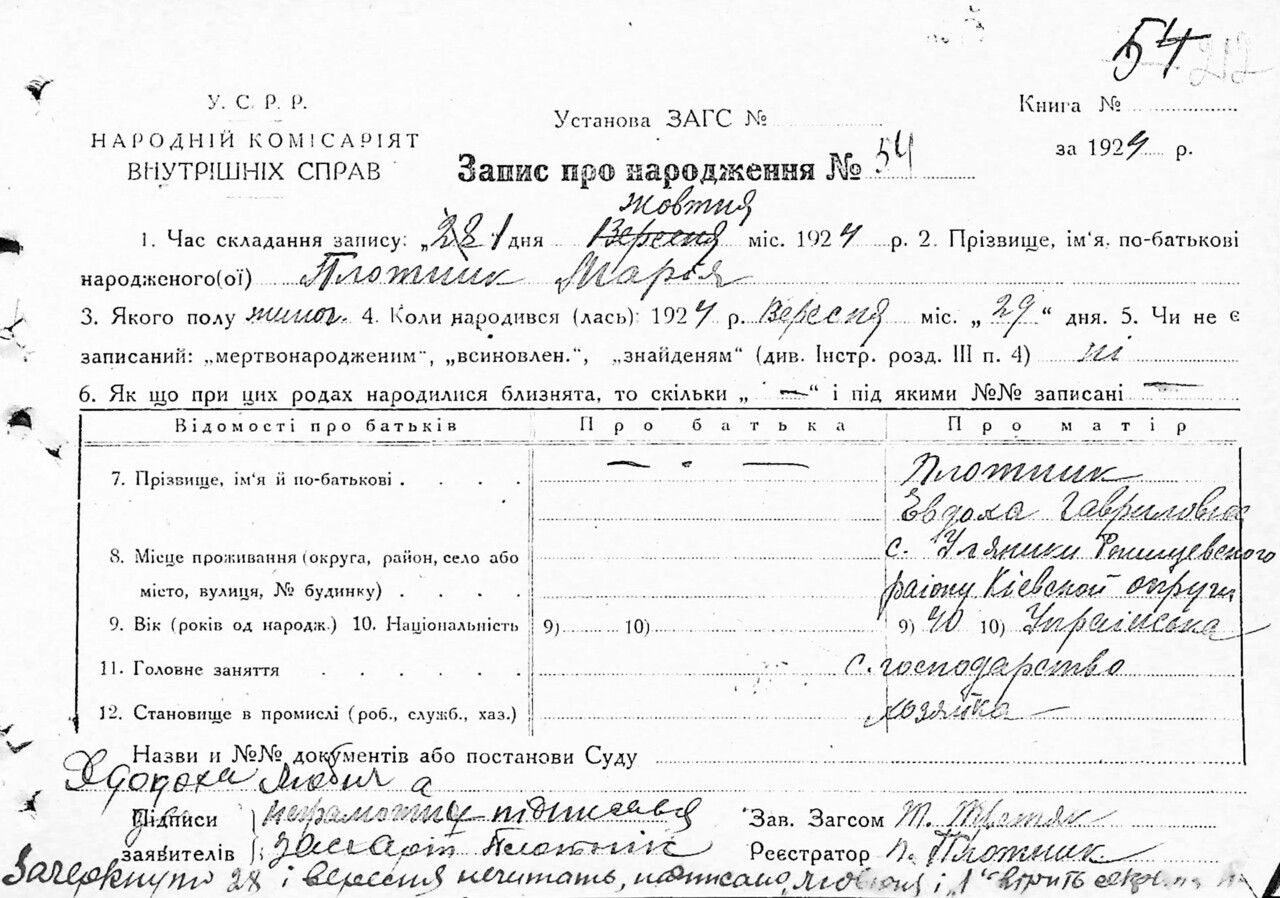 54 212
У. С. Р. Р.
НАРОДНІЙ КОМІСАРІЯТ
ВНУТРІШНІХ СПРАВ
Установа ЗАГС №
Книга №
за 1924 р.
Запис про народження № 54
жовтня
1. Час складання запису: „28 1 дня Вересня міс. 1924 р. 2. Прізвище, ім'я, по-батькові
народженого(ої) Плотник Марія
3. Якого полу жиноч. 4. Коли народився (лась): 1924 р. Вересня міс. „29“ дня. 5. Чи не є
записаний: „мертвонародженим“, „всиновлен.“, „знайденям“ (див. Інстр. розд. III п. 4) ні
6. Як що при цих родах народилися близнята, то скільки „ — “ і під якими №№ записані —
Відомості про батьків Про батька Про матір
7. Прізвище, ім'я й по-батькові . . . . — - — Плотник
Евдоха Гавриловна
8. Місце проживання (округа, район, село або с. Уляники
місто, вулиця, № будинку) . . . . району Кіевской округи
9. Вік (років од народж.) 10. Національність 9) 10) 9) 40 10) Українська
11. Головне заняття . . . . . . с. господарство
12. Становище в промислі (роб., служб., хаз.) хозяйка
Назви и №№ документів або постанови Суду
Підписи неграмотну підписався Зав. Загсом Т. Третяк
заявителів Плотнік Реєстратор Плотник
Зачеркнуто 28 і вересня нечитать, надписано жовтня і „1“